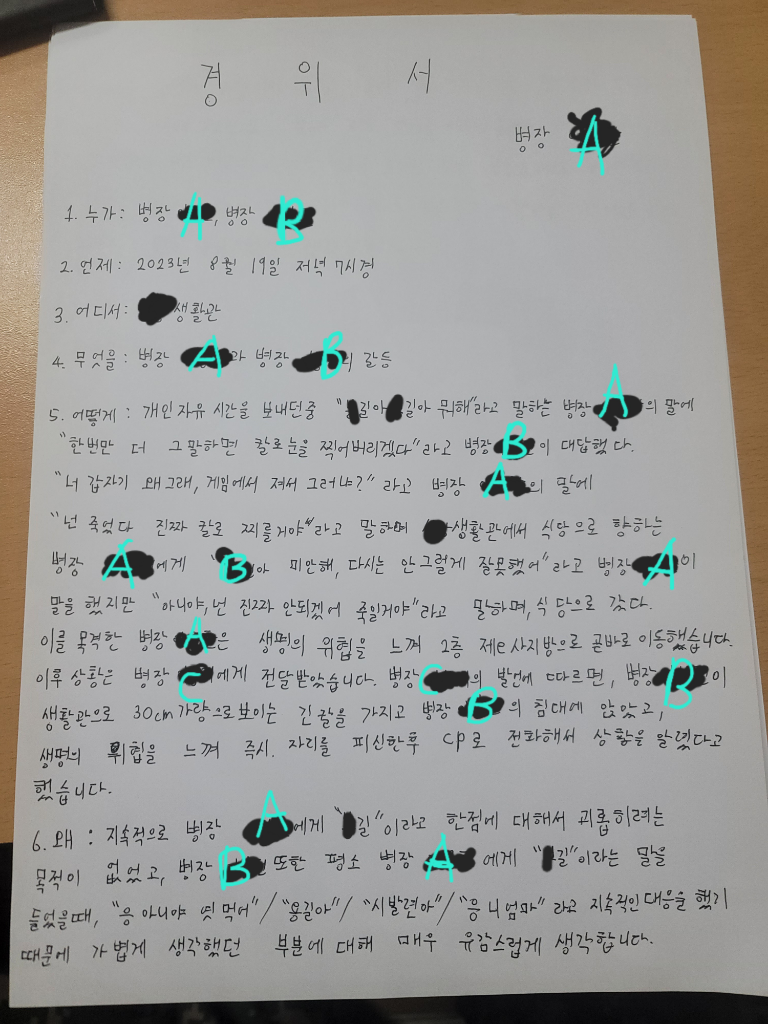 경 위 서
병장 A
1. 누가: 병장 A, 병장 B
2. 언제: 2023년 8월 19일 저녁 7시경
3. 어디서: 생활관
4. 무엇을: 병장 A과 병장 B의 갈등
5. 어떻게: 개인 자유 시간을 보내던 중 "길아 길아 뭐해"라고 말하는 병장 A의 말에
"한번만 더 그말하면 칼로 눈을 찍어버리겠다"라고 병장 B이 대답했다.
"너 갑자기 왜그래, 게임에서 져서 그러냐?" 라고 병장 A의 말에
"넌 죽었다 진짜 칼로 찌를거야"라고 말하며 생활관에서 식당으로 향하는
병장 A에게 "B아 미안해, 다시는 안그럴게 잘못했어"라고 병장 A이
말을 했지만 "아니야, 넌 진짜 안되겠어 죽일거야"라고 말하며, 식당으로 갔다.
이를 목격한 병장 A은 생명의 위협을 느껴 2층 제e사지방으로 곧바로 이동했습니다.
이후 상황은 병장 C에게 전달받았습니다. 병장 C의 발언에 따르면, 병장 B이
생활관으로 30cm 가량으로 보이는 긴 칼을 가지고 병장 B의 침대에 앉았고,
생명의 위협을 느껴 즉시 자리를 피신한후 CP로 전화해서 상황을 알렸다고
했습니다.
6. 왜: 지속적으로 병장 A에게 "길"이라고 한점에 대해서 괴롭히려는
목적이 없었고, 병장 B 또한 평소 병장 A에게 "길"이라는 말을
들었을때, "응 아니야 엿먹어"/"용길아"/"시발련아"/"응 니엄마" 라고 지속적인 대응을 했기
때문에 가볍게 생각했던 부분에 대해 매우 유감스럽게 생각합니다.